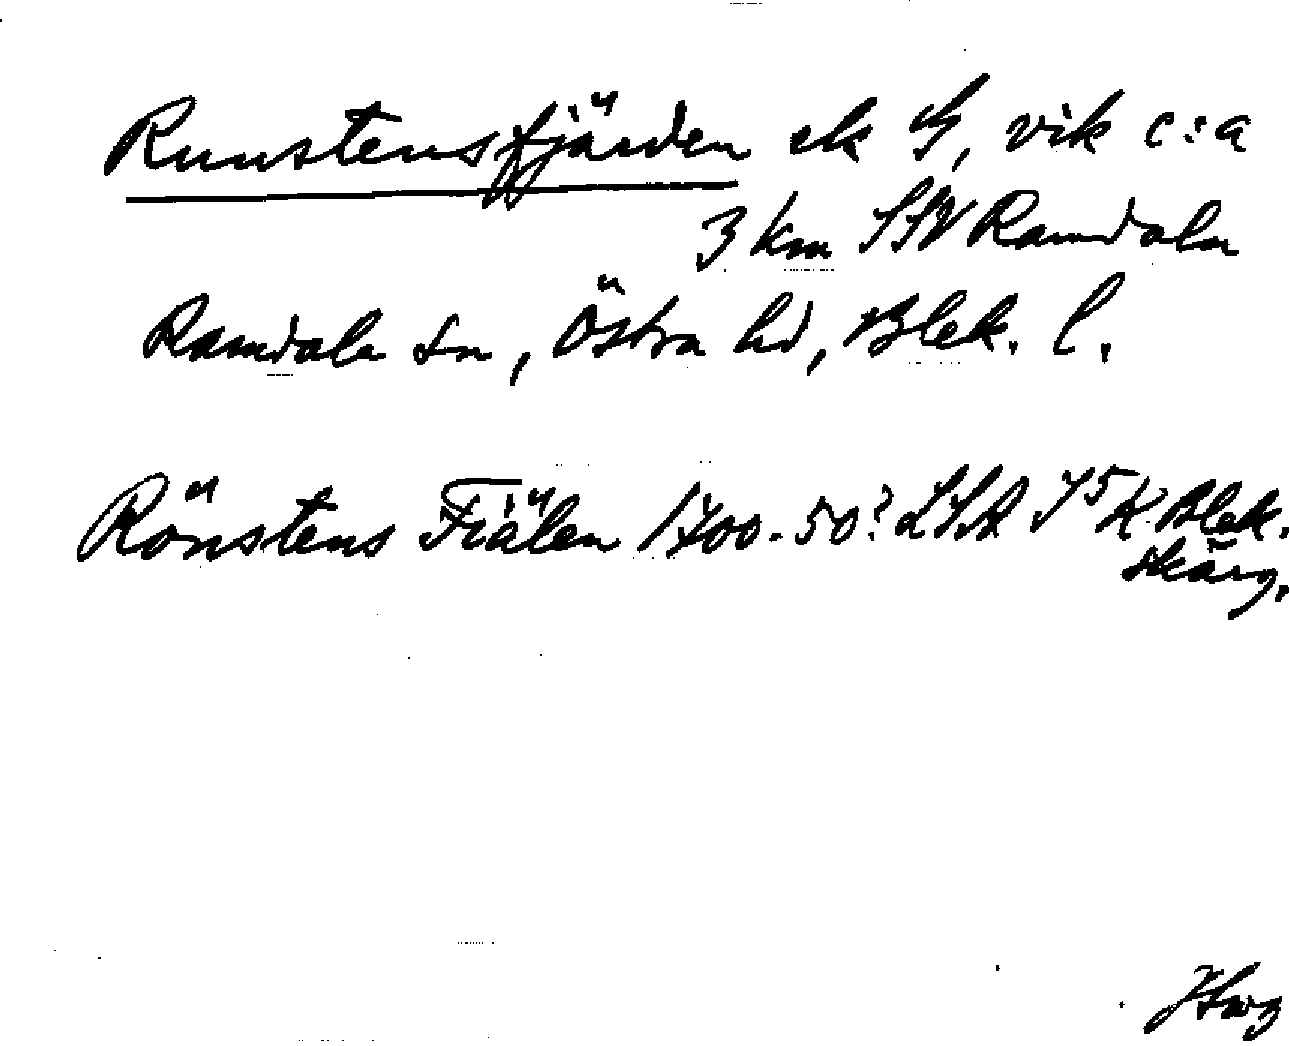 Runstensfjärden ek S, vik c:a
3 km SSV Ramdala
Ramdala sn, Östra hd, Blek. l.
Rönstens Fiälen 1700-50? LSA I 5 K Blek.
skärg.